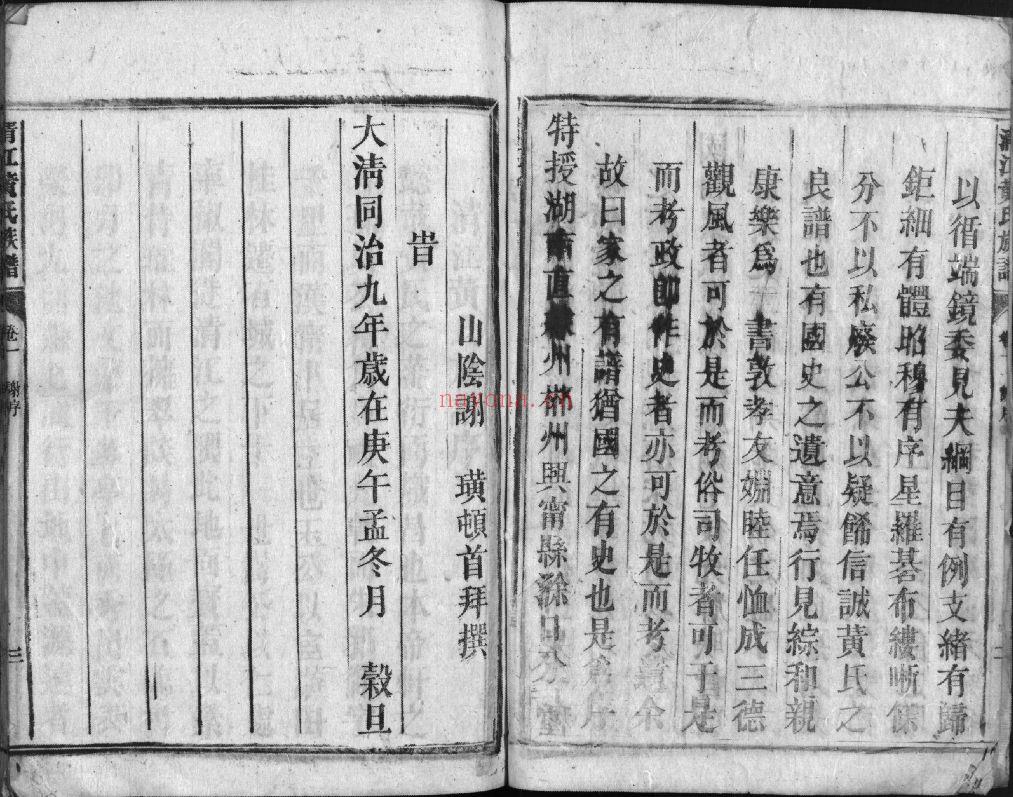 以循端鏡委見夫綱目有例支緒有歸
鉅細有體昭穆有序星羅碁布縷晰條
分不以私廢公不以疑餙信誠黃氏之
良譜也有國史之遺意焉行見綜和親
康樂為一書敦孝友婣睦任恤成三德
觀風者可於是而考俗司牧者可于是
而考政即作史者亦可於是而考
故曰家之有譜猶國之有史也是
特授湖南直隸州郴州興甯縣滁口
旹
山陰謝 璜頓首拜撰
大清同治九年歲在庚午孟冬月 榖旦
清江黃氏族譜
卷一
謝序
三
nayona.cn